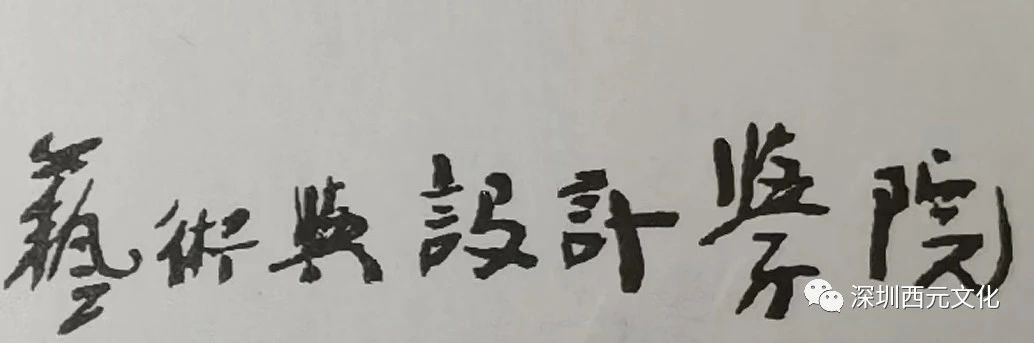 藝術與設計學院
深圳西元文化